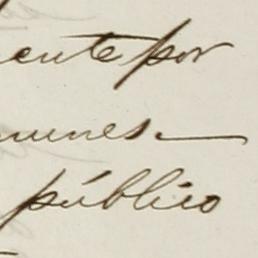 ente por
munes
público